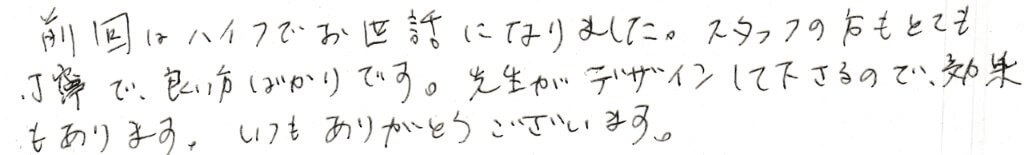 前回はハイフでお世話になりました。スタッフの方もとても
丁寧で、良い方ばかりです。先生がデザインして下さるので、効果
もあります。いつもありがとうございます。